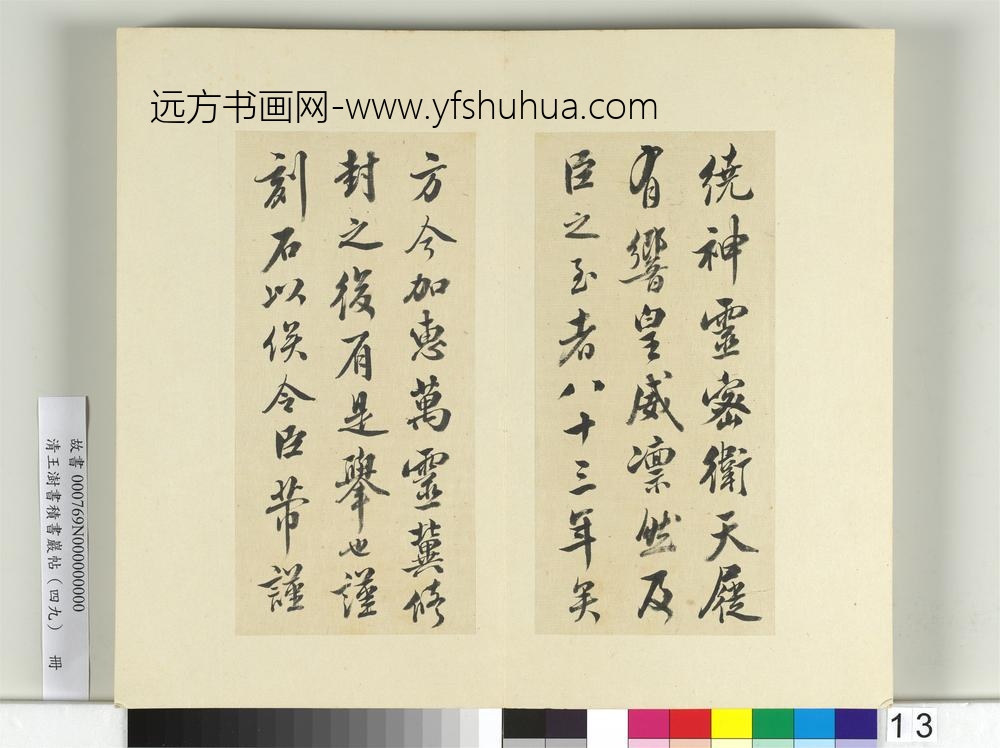 远方书画网-www.yfshuhua.com
繞神靈密衛天屐
有響皇威凛然及
臣之至者八十三年矣
方今加惠萬靈冀修
封之後有是舉也謹
刻石以俟令臣芾謹
故書 000769N000000000
清王澍書積書巖帖（四九） 冊
13